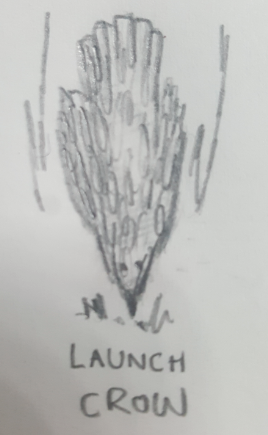 LAUNCH
CROW